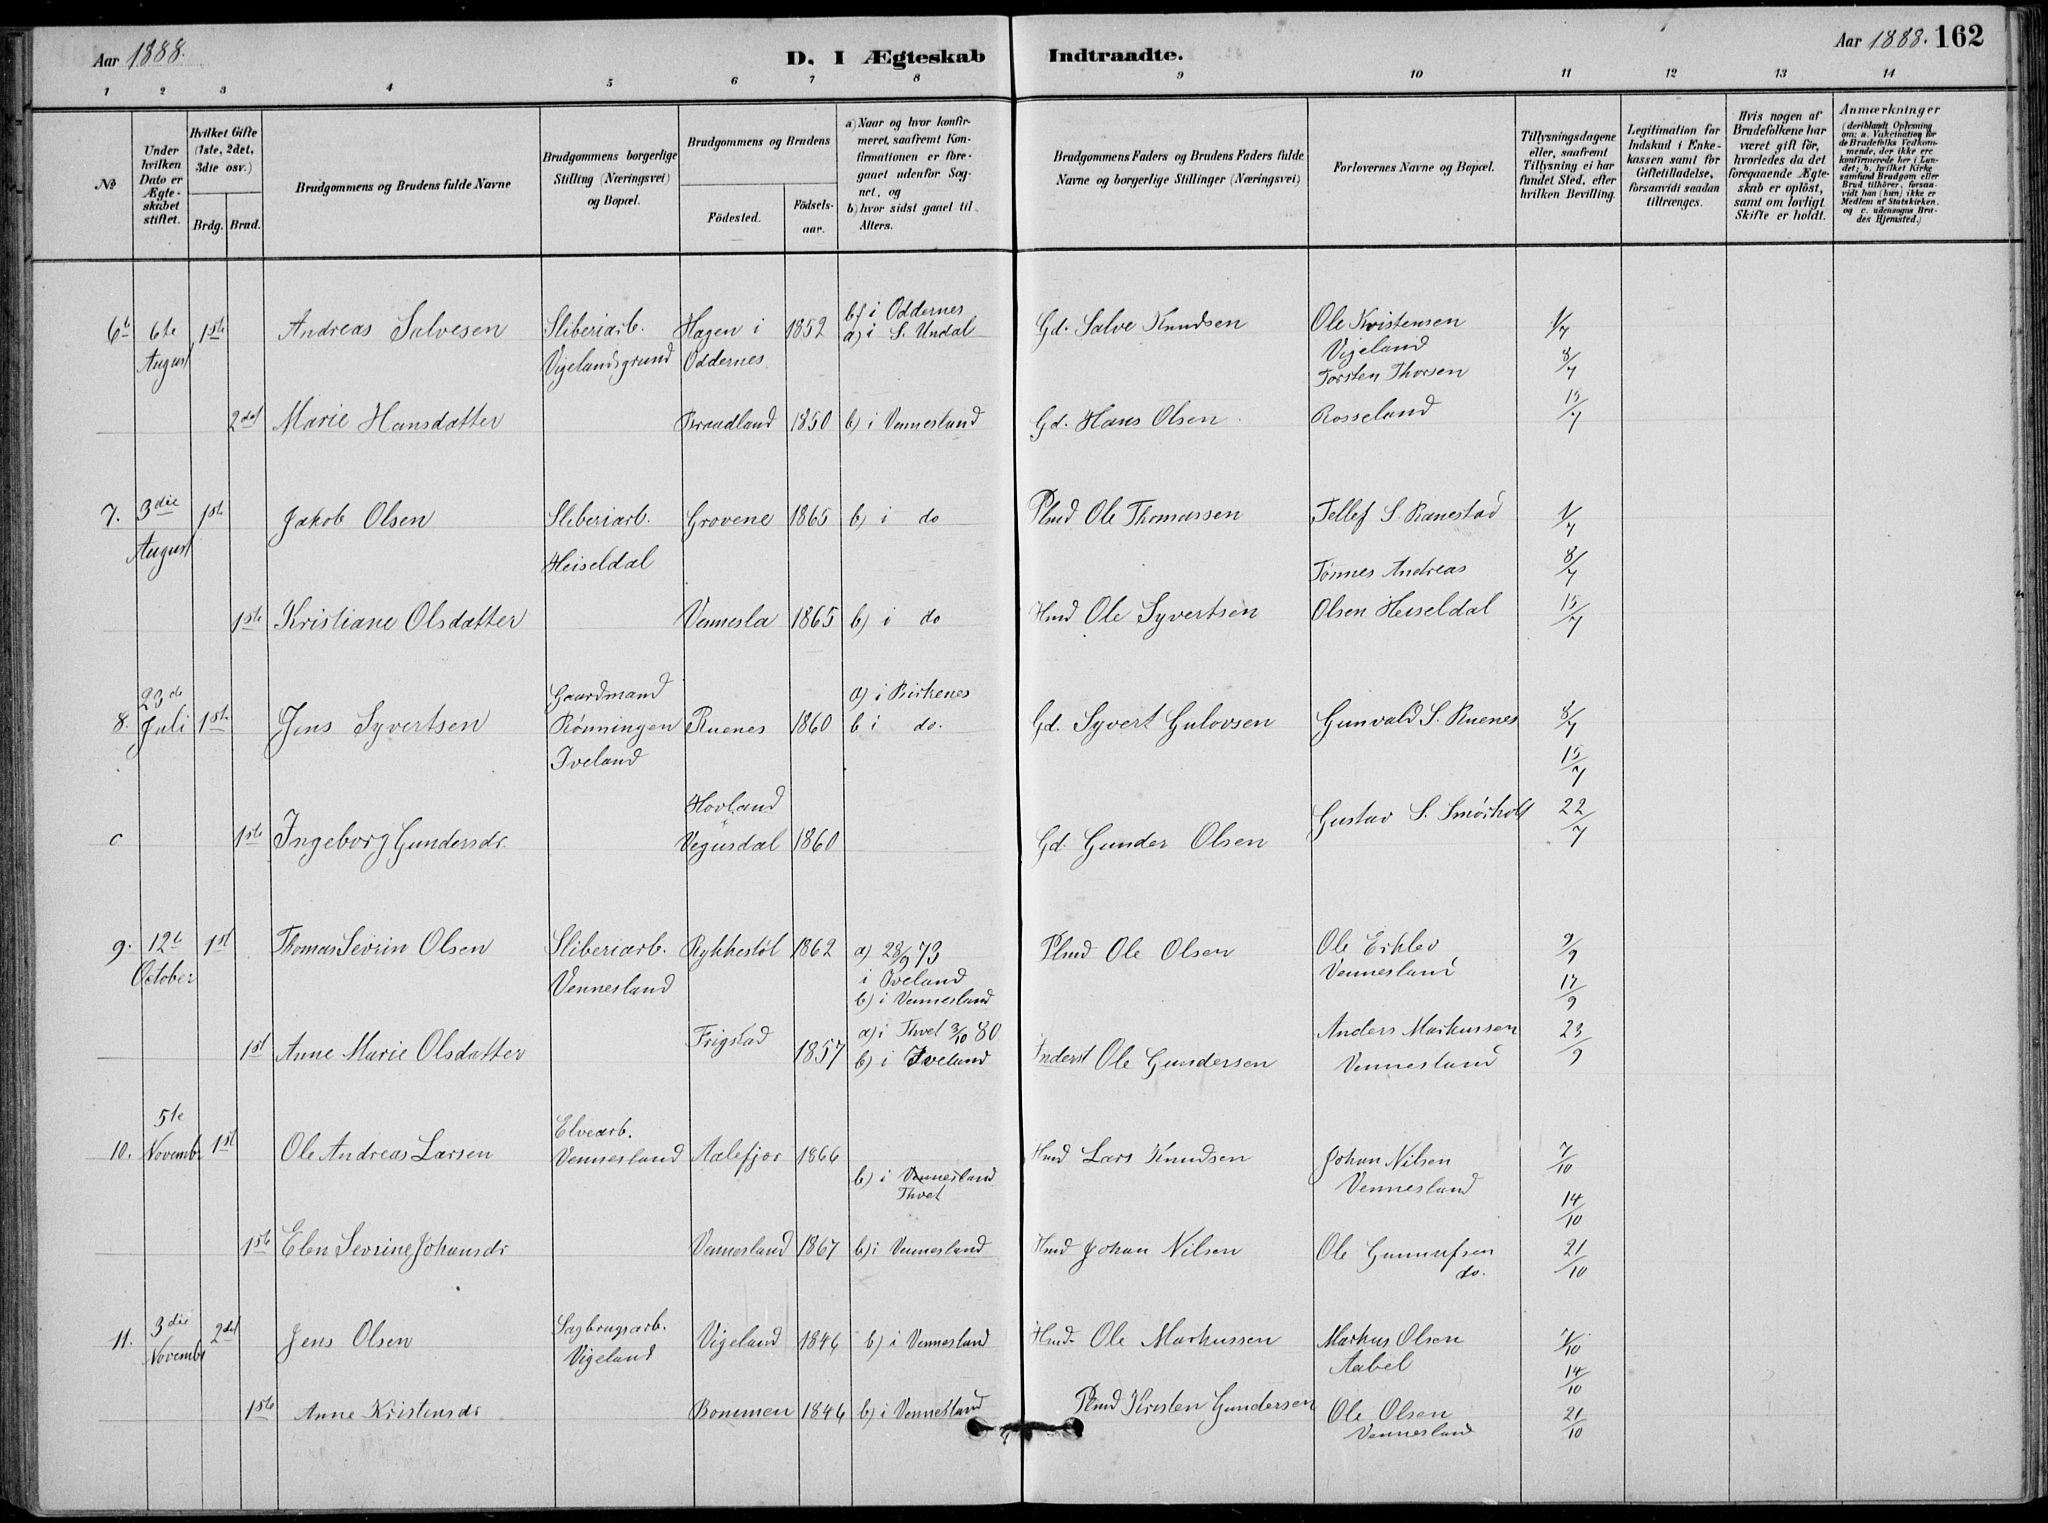 Aar 1888.
D. I Ægteskab Indtraadte.
Aar 1888. 162
1 2 3 4 5 6 7 8 9 10 11 12 13 14
№
Under hvilken Dato er Ægteskabet stiftet.
Hvilket Gifte (1ste, 2det, 3die osv.)
Brdg. Brud.
Brudgommens og Brudens fulde Navne
Brudgommens borgerlige Stilling (Næringsvei) og Bopæl.
Brudgommens og Brudens
Födested.
Födselsaar.
a) Naar og hvor konfirmeret, saafremt Konfirmationen er foregaaet udenfor Sognet, og
b) hvor sidst gaaet til Alters.
Brudgommens Faders og Brudens Faders fulde Navne og borgerlige Stillinger (Næringsvei)
Forlovernes Navne og Bopæl.
Tillysningsdagene eller, saafremt Tillysning ei har fundet Sted, efter hvilken Bevilling.
Legitimation for Indskud i Enkekassen samt for Giftetilladelse, forsaavidt saadan tiltrænges.
Hvis nogen af Brudefolkene har været gift för, hvorledes da det foregaaende Ægteskab er oplöst, samt om lovligt Skifte er holdt.
Anmærkninger
(deriblandt Oplysning om: a. Vakcination for de Brudefolks Vedkommende, der ikke ere konfirmerede her i Landet; b. hvilket Kirkesamfund Brudgom eller Brud tilhörer, forsaavidt han (hun) ikke er Medlem af Statskirken, og c. udensogns Brudes Hjemsted.)
6b 6te August 1ste Andreas Salvesen Sliberiarb. Vigelandsgrund Hagen i Oddernes 1852 b) i Oddernes a) i S. Undal Gd. Salve Knudsen Ole Kristensen Vigeland Torsten Thorsen 1/7 8/7
2det Marie Hansdatter Braadland 1850 b) i Vennesland Gd. Hans Olsen Rosseland 15/7
7. 3die August 1ste Jakob Olsen Sliberiarb. Heiseldal Grovene 1865 b) i do Plmd Ole Thomassen Tellef S. Ranestad Tönnes Andreas 1/7 8/7
1ste Kristiane Olsdatter Vennesla 1865 b) i do Hmd Ole Syvertsen Olsen Heiseldal 15/7
8. 23de Juli 1ste Jens Syvertsen Gaardmand Rönningen Iveland Ruenes 1860 a) i Birkenes b i do. Gd. Syvert Gulovsen Gunvald S. Ruenes 8/7 15/7
c 1ste Ingeborg Gundersdr. Hovland Vegusdal 1860 Gd. Gunder Olsen Gustav S. Smörholt 22/7
9. 12te October 1st Thomas Sevrin Olsen Sliberiarb. Vennesland Rykkestöl 1862 a) 28/9 73 i Iveland b) i Vennesland Plmd Ole Olsen Ole Erklev Vennesland 9/9 17/9
1st Anne Marie Olsdatter Frigstad 1857 a) i Thvet 3/10 80 b) i Iveland Inderst Ole Gundersen Anders Markussen Vennesland 23/9
10. 5te Novembr 1st Ole Andreas Larsen Elvearb. Vennesland Aalefjor 1866 b) i Vennesland Thvet Hmd Lars Knudsen Johan Nilsen Vennesland 7/10 14/10
1ste Elen Sevrine Johansdr Vennesland 1867 b) i Vennesland Hmd Johan Nilsen Ole Gunnufsen do. 21/10
11. 3die Novembr 2det Jens Olsen Sagbrugsarb. Vigeland Vigeland 1846 b) i Vennesland Hmd. Ole Markussen Markus Olsen Aabel 7/10 14/10
1ste Anne Kristensdr Bommen 1846 b) i Vennesland Plmd Kristen Gundersen Ole Olsen Vennesland 21/10